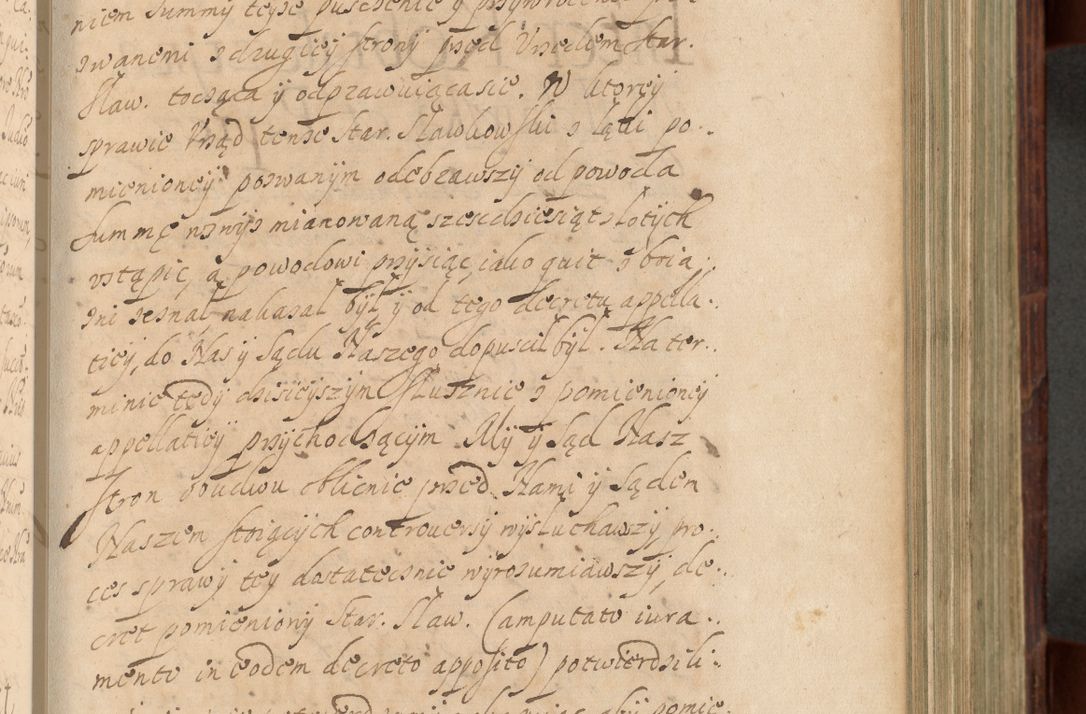 niem summy teyże puszczenie y przywrocenie
zwanemi z drugiey strony przed Vrzędem Star.
Sław. tocząca y odprawuiącasie. W ktorey
sprawie Vrząd tenże Star. Sławkowski z łąki po.
mienioney pozwanym odebrawszy od powoda
Summę wzwyż mianowaną sześćdziesiąt złotych
vstąpic, a powodowi przysiąc iako quit z bria.
zni zeznał nakazał był y od tego decretu appella.
tiey, do Nas y Sądu Naszego dopuscił był. Na ter.
minie tedy dzisieyszym słusznie z pomienioney
appellatiey przychodzącym My y Sąd Nasz
stron oboudwu oblicznie przed Nami y Sądem
Naszem stoiących controuersy wysłuchawszy pro.
ces sprawy tey dostatecznie wyrozumiawszy, de.
cret pomieniony Star. Sław. (amputato iura.
mento in eodem decreto apposito) potwierdzili.
aby pomie